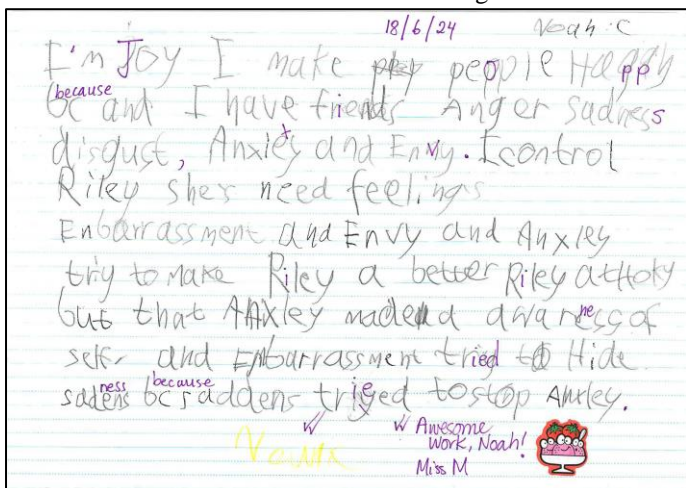 18/6/24 Noah.C
I'm Joy I make people Happy
because
bc and I have friends Anger sadness
disgust, Anxiety and Envy. I control
Riley shes need feelings
Embarrassment and Envy and Anxley
try to make Riley a better Riley
but that Anxley made a awarness of
self. and Embarrassment tried to Hide
sadness because
bc saddens tried to stop Anxley.
Noah
Awesome
work, Noah!
Miss M